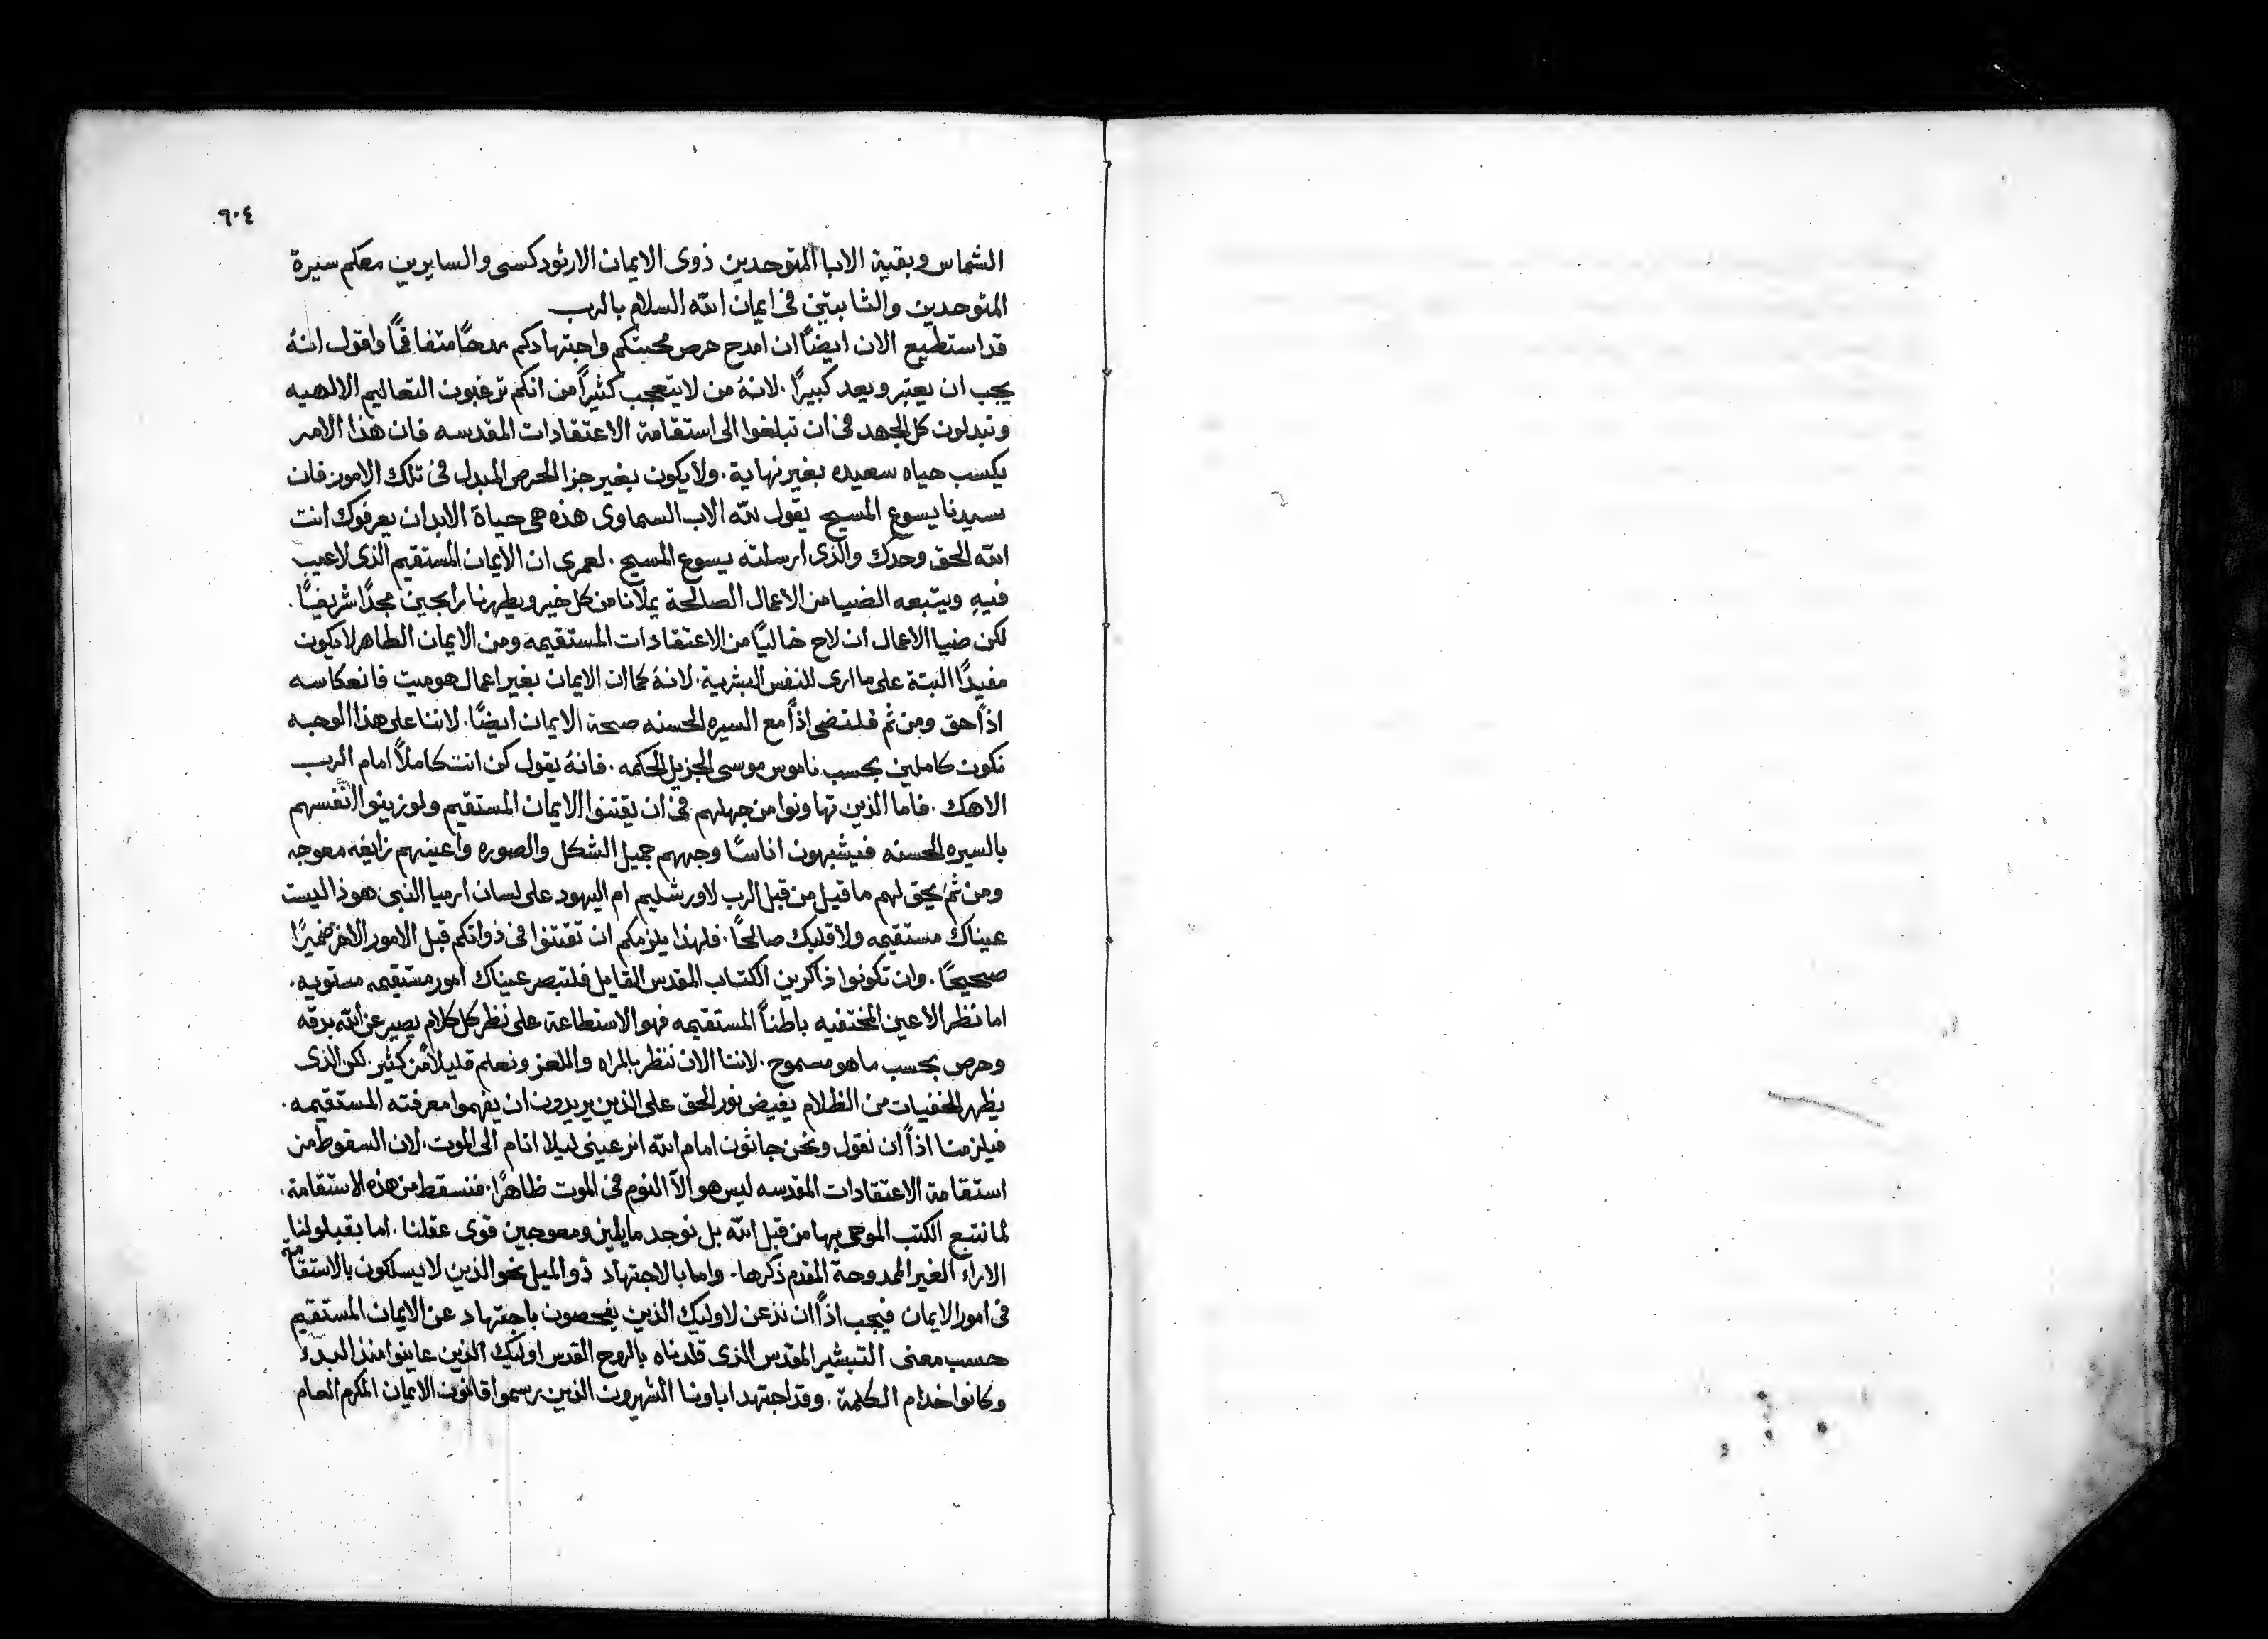 ٦٠٤
الشماس وبقية الابا المتوحدين ذوى الايمان الارثودكسى والسايرين معكم سيرة
المتوحدين والثابتين فى ايمان الله السلام بالرب
قد استطيع الان ايضًا ان امدح حرص محبتكم واجتهادكم مدحًا متفاقمًا واقول انهُ
يجب ان يعتبر ويعد كبيرًا . لانهُ من لا يتعجب كثيرًا من انكم ترغبون التعاليم الالهيه
وتبدلون كل الجهد فى ان تبلغوا الى استقامة الاعتقادات المقدسه فان هذا الامر
يكسب حياه سعيده بغير نهاية . ولا يكون بغير جزا الحرص المبدل فى تلك الامور فان
سيدنا يسوع المسيح يقول لله الاب السماوى هذه هى حياة الابد ان يعرفوك انت
الله الحق وحدك والذى ارسلته يسوع المسيح . لعمرى ان الايمان المستقيم الذى لا عيب
فيهِ ويتبعه الضيا من الاعمال الصالحة يملانا من كل خير ويظهرنا رابحين مجدًا شريفًا .
لكن ضيا الاعمال ان لاح خاليًا من الاعتقادات المستقيمه ومن الايمان الطاهر لا يكون
مفيدًا البتة على ما ارى للنفس البشرية . لانهُ كما ان الايمان بغير اعمال هو ميت فانعكاسه
اذًا حق ومن ثم فلتضى اذًا مع السيره الحسنه صحة الايمان ايضًا . لاننا على هذا الوجه
نكون كاملين بحسب ناموس موسى الجزيل الحكمه . فانهُ يقول كن انت كاملاً امام الرب
الاهك . فاما الذين تهاونوا من جهلهم فى ان يقتنوا الايمان المستقيم ولو زينوا انفسهم
بالسيره الحسنه فيشبهون اناسًا وجههم جميل الشكل والصوره واعينهم زايغه معوجه
ومن ثم يحق لهم ما قيل من قبل الرب لاورشليم ام اليهود على لسان ارميا النبى هوذا ليست
عيناك مستقيمه ولا قلبك صالحًا . فلهذا يلزمكم ان تقتنوا فى ذواتكم قبل الامور الاخر ضميرًا
صحيحًا . وان تكونوا ذاكرين الكتاب المقدس القايل فلتبصر عيناك امور مستقيمه مستويه .
اما نظر الاعين المختفيه باطناً المستقيمه فهو الاستطاعة على نظر كل كلام يصير عن الله بدقه
وحرص بحسب ما هو مسموح . لاننا الان ننظر بالمراه واللغز ونعلم قليلاً من كثير . لكن الذى
يظهر الخفيات من الظلام يفيض نور الحق على الذين يريدون ان يفهموا معرفته المستقيمه .
فيلزمنا اذاً ان نقول ونحن جاثون امام الله انر عينى ليلا انام الى الموت . لان السقوط من
استقامة الاعتقادات المقدسه ليس هو الاّ النوم فى الموت ظاهرًا . فنسقط من هذه الاستقامة .
لما نتبع الكتب الموحى بها من قبل الله بل نوجد مايلين ومعوجين قوى عقلنا . اما بقبولنا
الاراء الغير الممدوحة المقدم ذكرها . واما بالاجتهاد ذو الميل نحو الذين لا يسلكون بالاستقامة
فى امور الايمان فيجب اذاً ان نذعن لاوليك الذين يفحصون باجتهاد عن الايمان المستقيم
حسب معنى التبشير المقدس الذى قلدناه بالروح القدس اوليك الذين عاينوا منذ البدء
وكانوا خدام الكلمة . وقد اجتهد اباونا الشهيرون الذين رسموا قانون الايمان المكرم العام